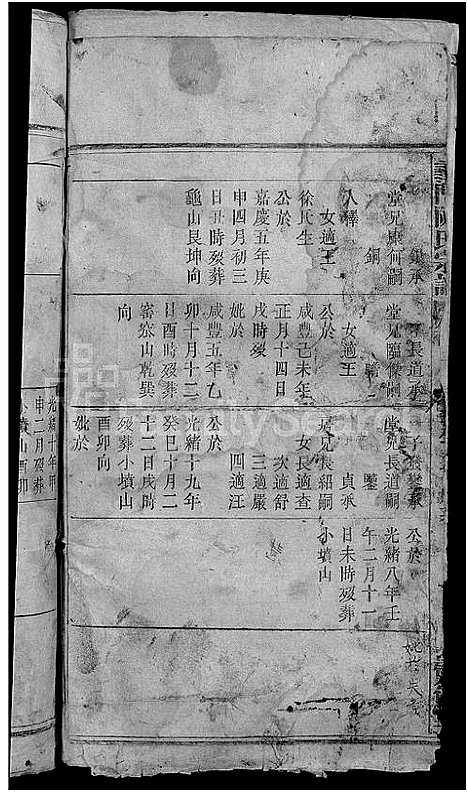 堂兄康侯嗣
人繹
女適王
徐氏生
公於
嘉慶五年庚
申四月初三
日丑時歿葬
龜山艮坤向
長道承
堂兄臨侯嗣
女適王
公於
咸豐己未年
正月十四日
戌時歿
妣於
咸豐五年乙
卯十月十二
日酉時歿葬
窑岽山乾巽
向
堂兄長道嗣
鑒
貞承
兄長紹嗣
女長適查
次適舒
三適嚴
四適汪
公於
光緒十九年
癸巳十月二
十二日戌時
歿葬小墳山
酉卯向
妣於
公於
光緒八年壬
午二月十一
日未時歿葬
小墳山
光緒十年甲
申二月歿葬
墳山酉卯